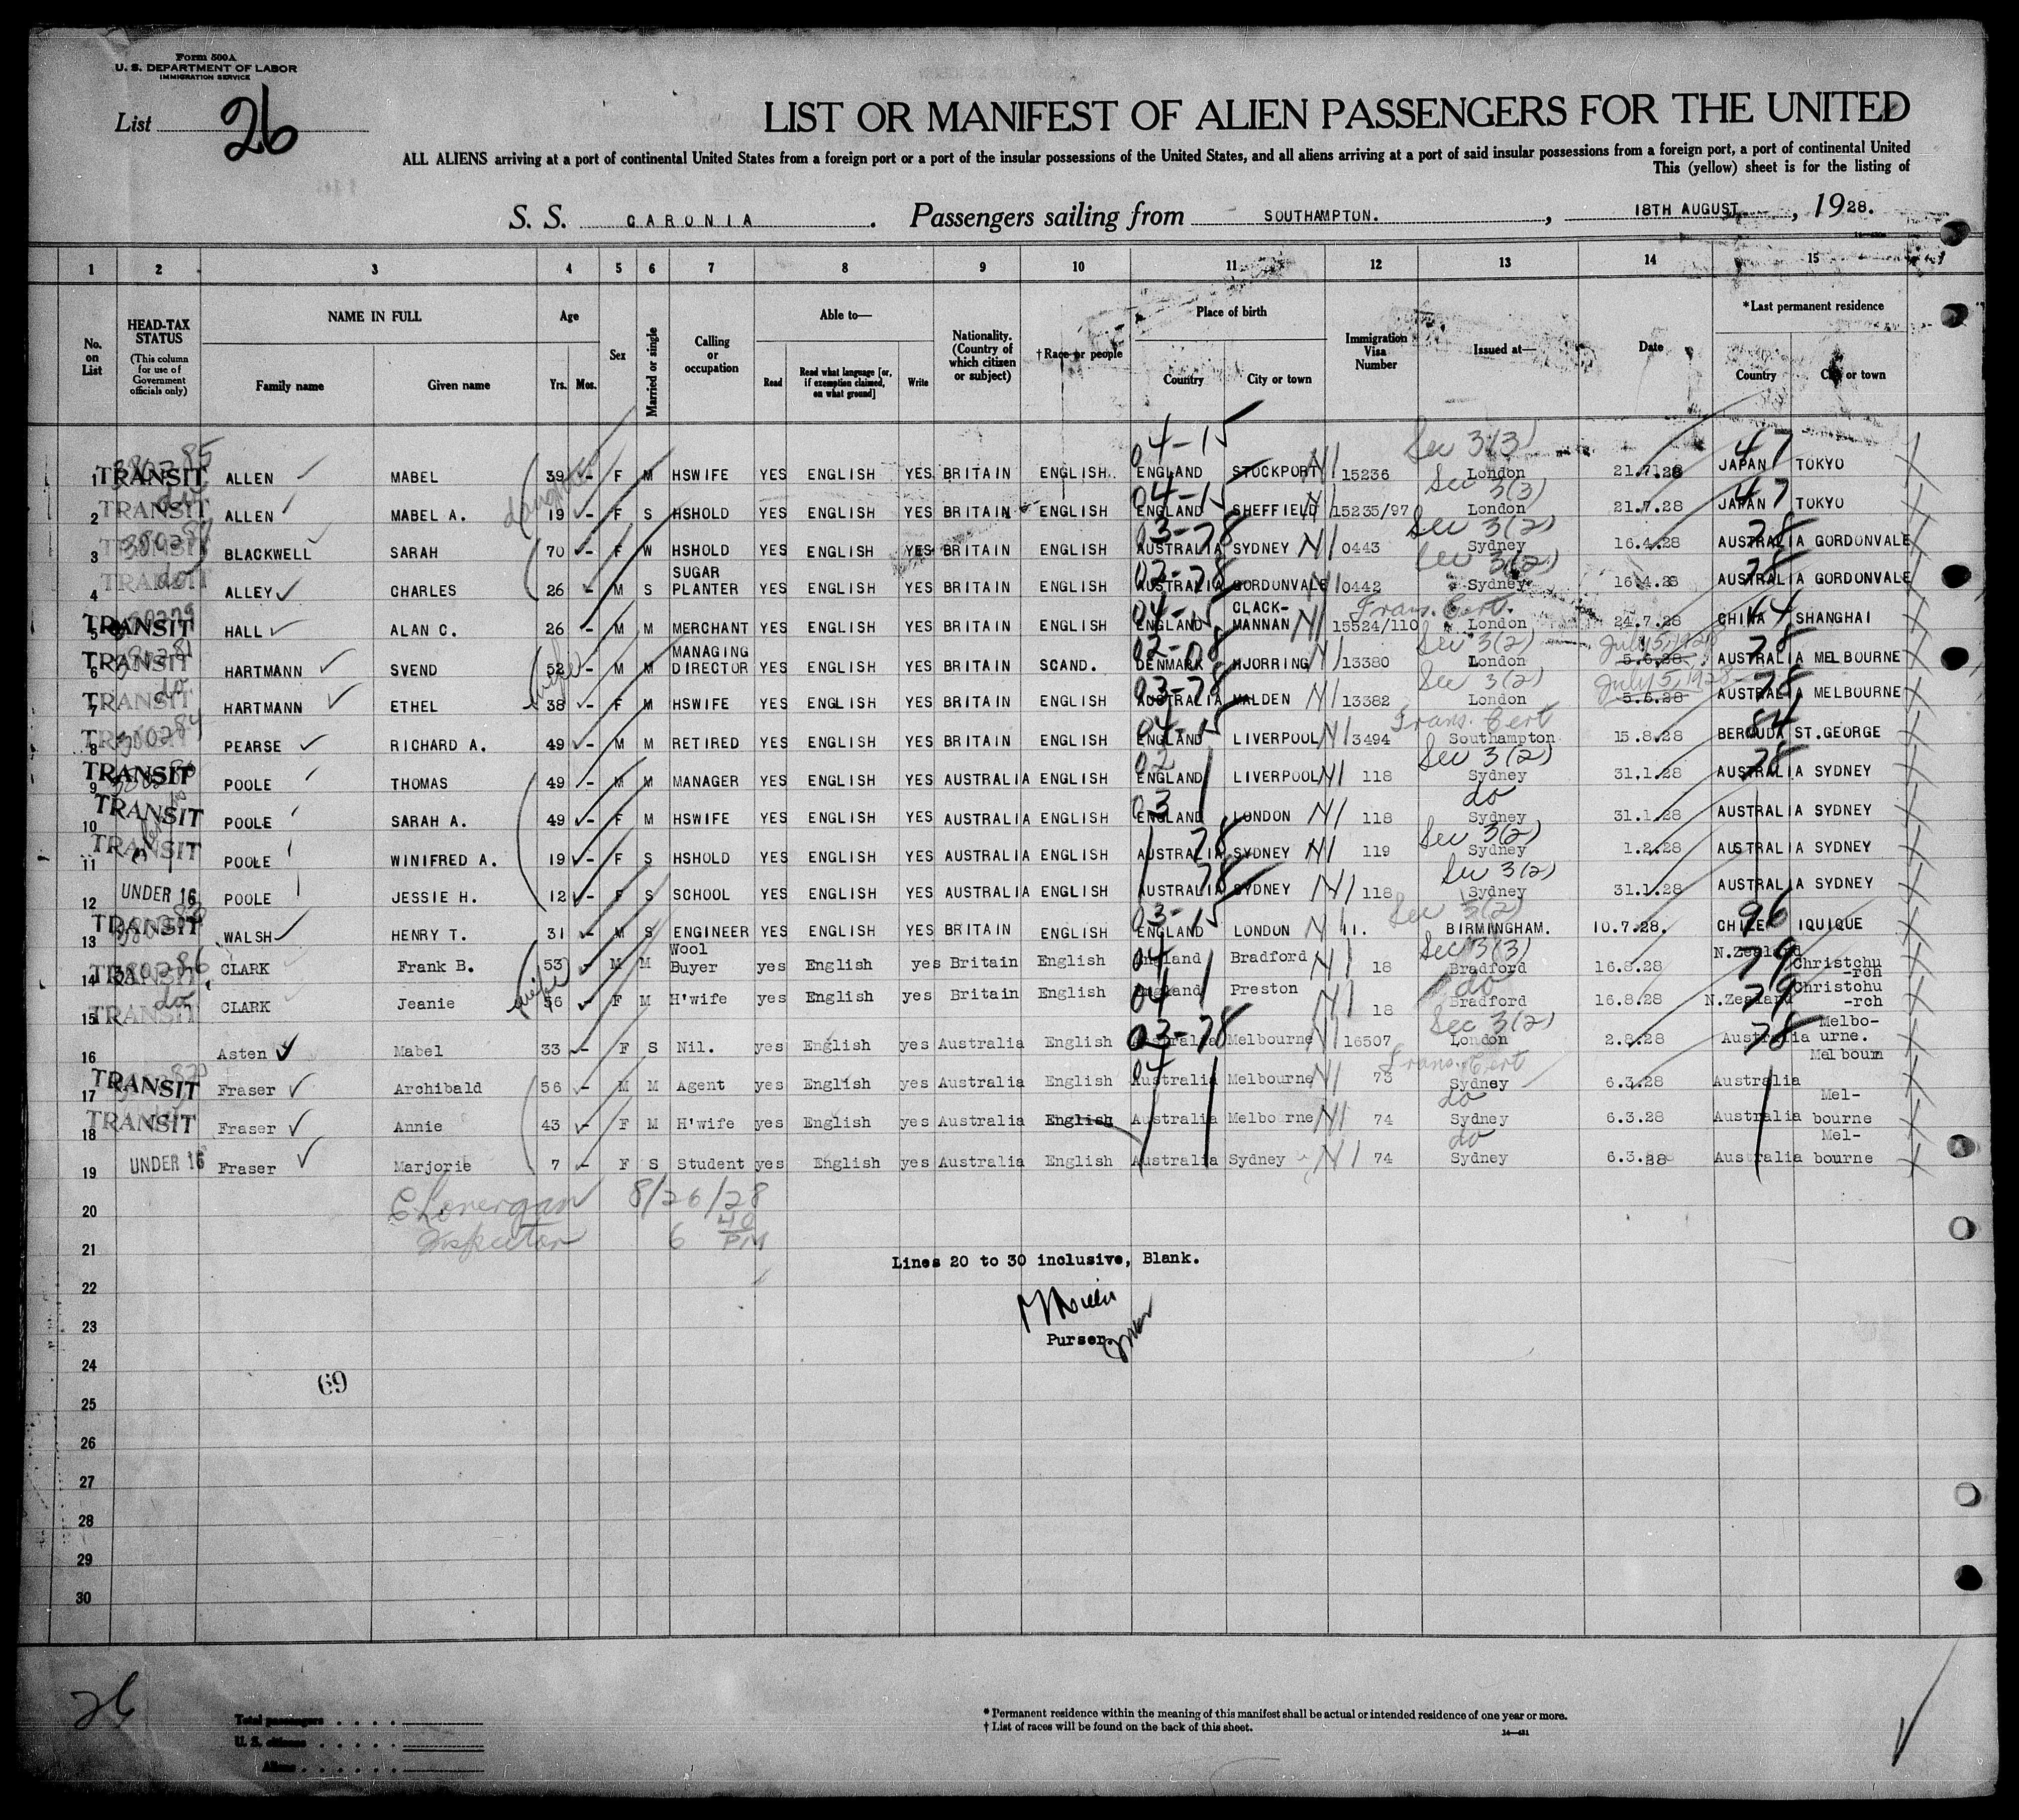 Form 500A
U. S. DEPARTMENT OF LABOR
IMMIGRATION SERVICE
List 26
LIST OR MANIFEST OF ALIEN PASSENGERS FOR THE UNITED
ALL ALIENS arriving at a port of continental United States from a foreign port or a port of the insular possessions of the United States, and all aliens arriving at a port of said insular possessions from a foreign port, a port of continental United
This (yellow) sheet is for the listing of
S. S. CARONIA. Passengers sailing from SOUTHAMPTON., 18TH AUGUST, 1928.
1 2 3 4 5 6 7 8 9 10 11 12 13 14 15
No. on List
HEAD-TAX STATUS (This column for use of Government officials only)
NAME IN FULL Family name Given name
Age Yrs. Mos.
Sex
Married or single
Calling or occupation
Able to— Read Read what language [or, if exemption claimed, on what ground] Write
Nationality. (Country of which citizen or subject)
†Race or people
Place of birth Country City or town
Immigration Visa Number
Issued at—
Date
*Last permanent residence Country City or town
04-15 Sec 3(3) 47
1 TRANSIT ALLEN MABEL 39 - F M HSWIFE YES ENGLISH YES BRITAIN ENGLISH. ENGLAND STOCKPORT N/ 15236 London 21.7.28 JAPAN TOKYO
daughter 04-15 Sec 3(3) 47
2 TRANSIT do ALLEN MABEL A. 19 - F S HSHOLD YES ENGLISH YES BRITAIN ENGLISH ENGLAND SHEFFIELD N/ 15235/97 London 21.7.28 JAPAN TOKYO
03-78 Sec 3(2) 78
3 TRANSIT BLACKWELL SARAH 70 - F W HSHOLD YES ENGLISH YES BRITAIN ENGLISH AUSTRALIA SYDNEY N/ 0443 Sydney 16.4.28 AUSTRALIA GORDONVALE
Sec 3(2) 78
4 TRANSIT do ALLEY CHARLES 26 - M S SUGAR PLANTER YES ENGLISH YES BRITAIN ENGLISH AUSTRALIA GORDONVALE N/ 0442 Sydney 16.4.28 AUSTRALIA GORDONVALE
04-15 Trans. Cert. 44
5 TRANSIT HALL ALAN C. 26 - M M MERCHANT YES ENGLISH YES BRITAIN ENGLISH ENGLAND CLACK-MANNAN N/ 15524/110 London 24.7.28 CHINA SHANGHAI
02-08 Sec 3(2) July 5, 1928 78
6 TRANSIT HARTMANN SVEND 52 - M M MANAGING DIRECTOR YES ENGLISH YES BRITAIN SCAND. DENMARK HJORRING N/ 13380 London 5.6.28 AUSTRALIA MELBOURNE
wife 03-78 Sec 3(2) July 5, 1928 78
7 TRANSIT do HARTMANN ETHEL 38 - F M HSWIFE YES ENGLISH YES BRITAIN ENGLISH AUSTRALIA MALDEN N/ 13382 London 5.6.28 AUSTRALIA MELBOURNE
04-15 Trans. Cert 84
8 TRANSIT PEARSE RICHARD A. 49 - M M RETIRED YES ENGLISH YES BRITAIN ENGLISH ENGLAND LIVERPOOL N/ 3494 Southampton 15.8.28 BERMUDA ST.GEORGE
02 Sec 3(2) 78
9 TRANSIT POOLE THOMAS 49 - M M MANAGER YES ENGLISH YES AUSTRALIA ENGLISH ENGLAND LIVERPOOL N/ 118 Sydney 31.1.28 AUSTRALIA SYDNEY
03 do
10 TRANSIT POOLE SARAH A. 49 - F M HSWIFE YES ENGLISH YES AUSTRALIA ENGLISH ENGLAND LONDON N/ 118 Sydney 31.1.28 AUSTRALIA SYDNEY
78 Sec 3(2)
11 TRANSIT POOLE WINIFRED A. 19 - F S HSHOLD YES ENGLISH YES AUSTRALIA ENGLISH AUSTRALIA SYDNEY N/ 119 Sydney 1.2.28 AUSTRALIA SYDNEY
78 Sec 3(2)
12 UNDER 16 POOLE JESSIE H. 12 - F S SCHOOL YES ENGLISH YES AUSTRALIA ENGLISH AUSTRALIA SYDNEY N/ 118 Sydney 31.1.28 AUSTRALIA SYDNEY
03-15 Sec 3(2) 96
13 TRANSIT WALSH HENRY T. 31 - M S ENGINEER YES ENGLISH YES BRITAIN ENGLISH ENGLAND LONDON N/ 11. BIRMINGHAM. 10.7.28. CHILE IQUIQUE
04 Sec 3(3) 79
14 TRANSIT CLARK Frank B. 53 - M M Wool Buyer yes English yes Britain English England Bradford N/ 18 Bradford 16.8.28 N.Zealand Christchu-rch
wife 04 do 79
15 TRANSIT do CLARK Jeanie 56 - F M H'wife yes English yes Britain English England Preston N/ 18 Bradford 16.8.28 N.Zealand Christchu-rch
03-78 Sec 3(2) 78
16 Asten Mabel 33 - F S Nil. yes English yes Australia English Australia Melbourne N/ 16507 London 2.8.28 Australia Melbo-urne.
04 Trans. Cert
17 TRANSIT Fraser Archibald 56 - M M Agent yes English yes Australia English Australia Melbourne N/ 73 Sydney 6.3.28 Australia Melbourn
do
18 TRANSIT Fraser Annie 43 - F M H'wife yes English yes Australia English Australia Melbo rne N/ 74 Sydney 6.3.28 Australia Mel-bourne
do
19 UNDER 16 Fraser Marjorie 7 - F S Student yes English yes Australia English Australia Sydney N/ 74 Sydney 6.3.28 Australia Mel-bourne
20 C Lonergan 8/26/28
Inspector 6 40 PM
21
Lines 20 to 30 inclusive, Blank.
22
23
Purser.
24
69
25
26
27
28
29
30
26
Total passengers
U. S. citizens
Aliens
* Permanent residence within the meaning of this manifest shall be actual or intended residence of one year or more.
† List of races will be found on the back of this sheet.
14—431